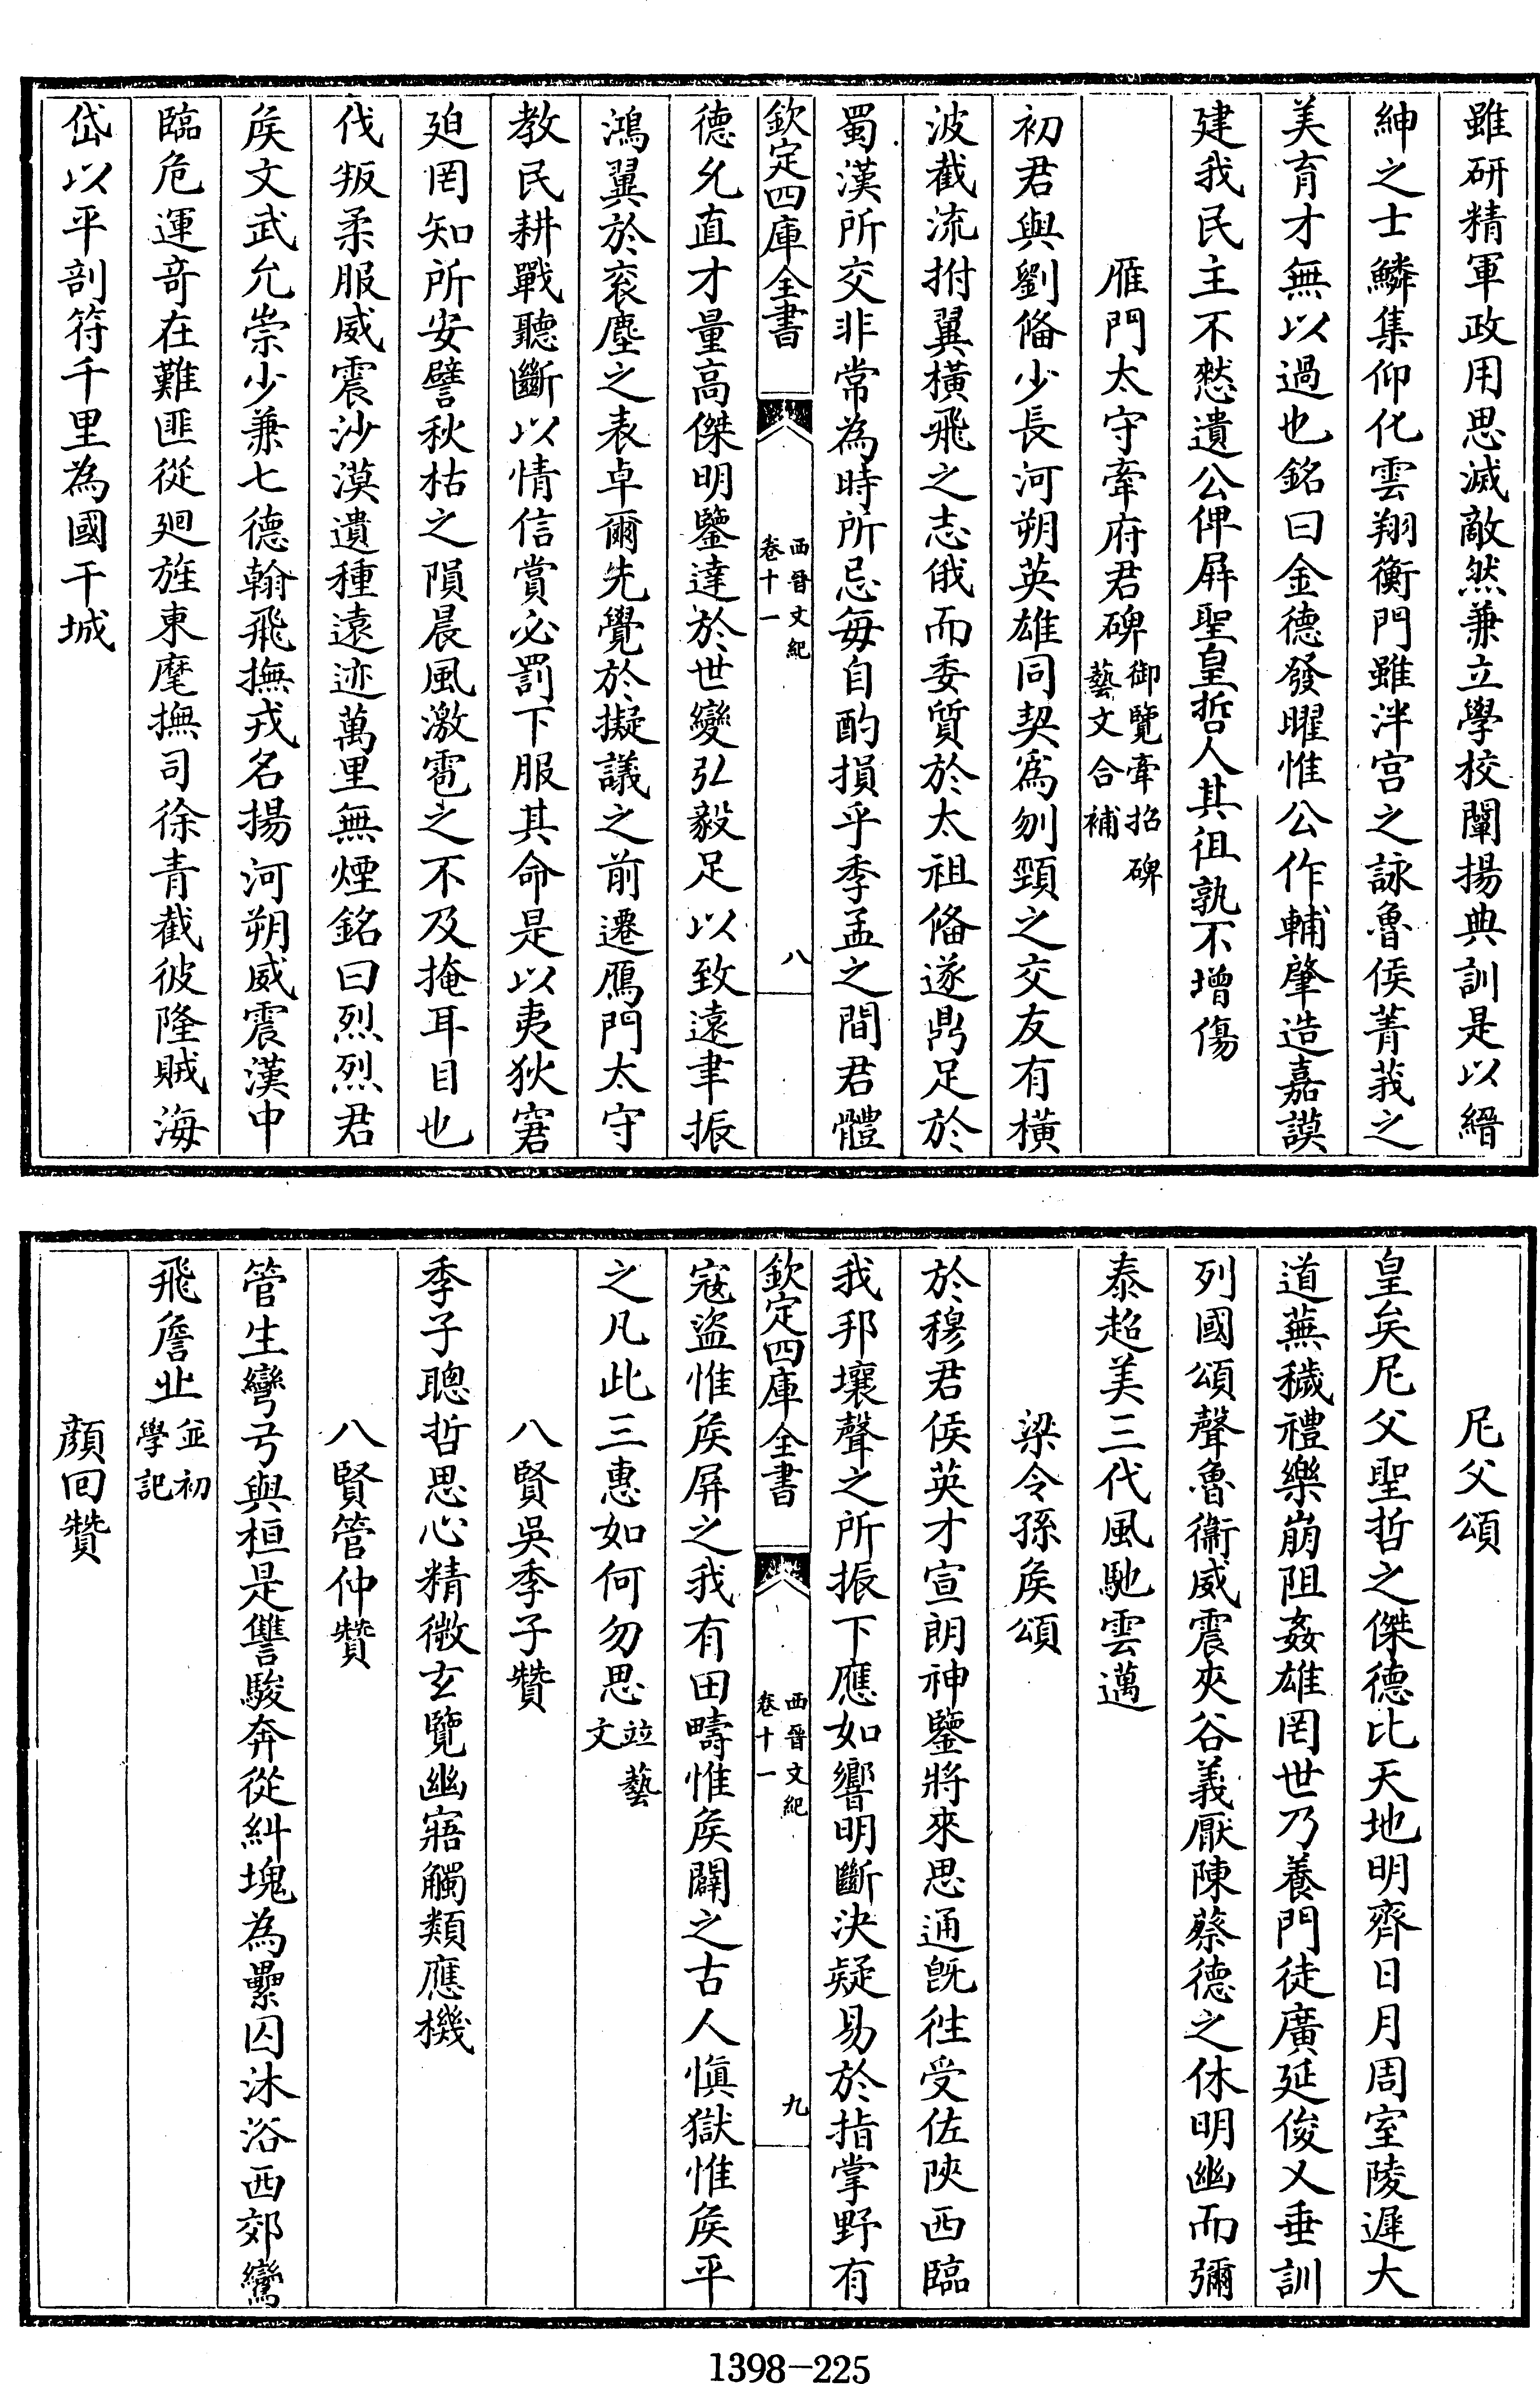 雖研精軍政用思滅敵然兼立學校闡揚典訓是以縉
紳之士鱗集仰化雲翔衡門雖泮宮之詠魯侯菁莪之
美育才無以過也銘曰金德發曜惟公作輔肇造嘉謨
建我民主不憖遺公俾屏聖皇哲人其徂孰不增傷
雁門太守牽府君碑御覽牽招碑藝文合補
初君與劉俻少長河朔英雄同契為刎頸之交友有橫
波截流拊翼橫飛之志俄而委質於太祖俻遂鼎足於
蜀漢所交非常為時所忌每自酌損乎季孟之間君體
欽定四庫全書
西晉文紀
卷十一
八
德允直才量高傑明鑒達於世變弘毅足以致遠聿振
鴻翼於衮塵之表卓爾先覺於擬議之前遷鴈門太守
教民耕戰聽斷以情信賞必罰下服其命是以夷狄窘
廹罔知所安譬秋枯之隕晨風激雹之不及掩耳目也
伐叛柔服威震沙漠遺種遠迹萬里無煙銘曰烈烈君
矦文武允崇少兼七德翰飛撫戎名揚河朔威震漢中
臨危運奇在難匪從廻旌東麾撫司徐青截彼隆賊海
岱以平剖符千里為國干城
尼父頌
皇矣尼父聖哲之傑德比天地明齊日月周室陵遲大
道蕪穢禮樂崩阻姦雄罔世乃養門徒廣延俊乂垂訓
列國頌聲魯衞威震夾谷義厭陳蔡德之休明幽而彌
泰超美三代風馳雲邁
梁令孫矦頌
於穆君侯英才宣朗神鑒將來思通旣徃受佐陝西臨
我邦壤聲之所振下應如響明斷決疑易於指掌野有
欽定四庫全書
西晉文紀
卷十一
九
寇盜惟矦屏之我有田疇惟矦闢之古人愼獄惟矦平
之凡此三惠如何勿思竝藝文
八賢吳季子贊
季子聰哲思心精微玄覽幽寤觸類應機
八賢管仲贊
管生彎弓與桓是讐駿奔從糾塊為纍囚沐浴西郊鸞
飛詹止竝初學記
顏回贊
1398—225